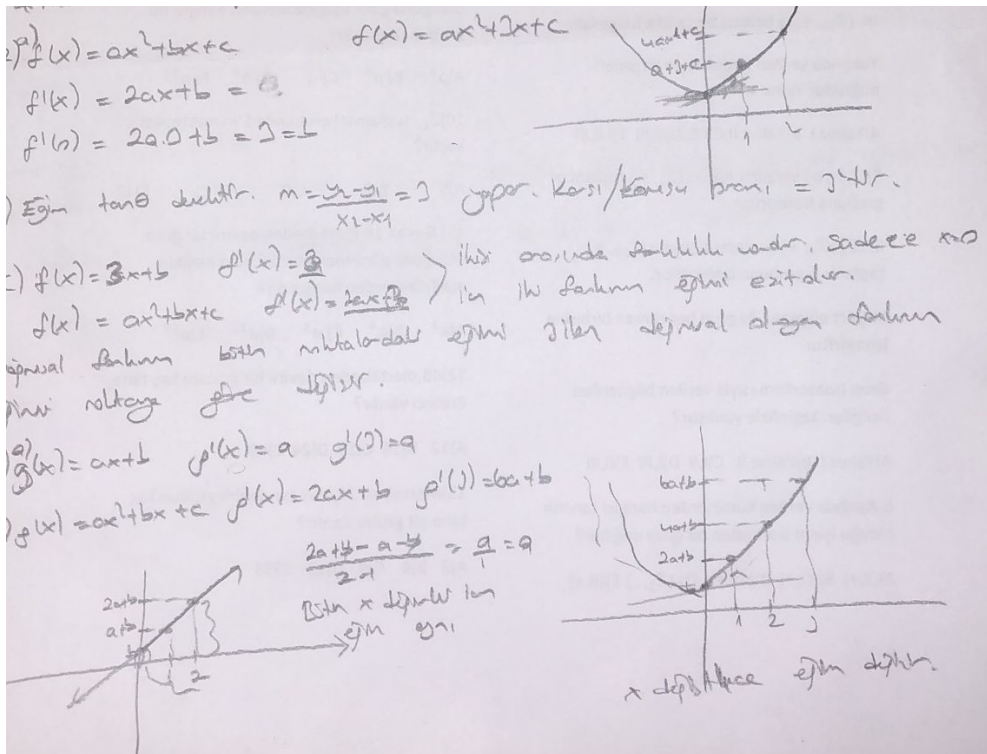 a) f(x) = ax²+bx+c
f(x) = ax²+3x+c
f'(x) = 2ax+b =
f'(0) = 2a.0+b = 3 = b
4a+6+c
a+3+c
1
2
) Eğim tanθ demektir. m = y₂-y₁ / x₂-x₁ = 3 yapar. Karşı/Komşu oranı = 3'tür.
c) f(x) = 3x+b f'(x) = 3
ikisi arasında farklılık vardır. Sadece x=0
f(x) = ax²+bx+c f'(x) = 2ax+3
için iki fonksiyonun eğimi eşittir.
bütün noktalardaki eğimi 3 iken doğrusal olmayan
noktaya göre değişir.
a) g(x) = ax+b g'(x) = a g'(3) = a
) g(x) = ax²+bx+c g'(x) = 2ax+b g'(3) = 6a+b
2a+b-a-b / 2-1 = a/1 = a
Bütün x değerleri için
eğim aynı
2a+b
a+b
b
2
6a+b
4a+b
2a+b
1 2 3
x değiştikçe eğim değişir.